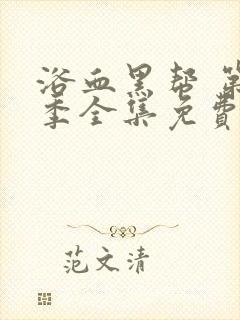 浴血黑帮 第
季全集免费
范文清